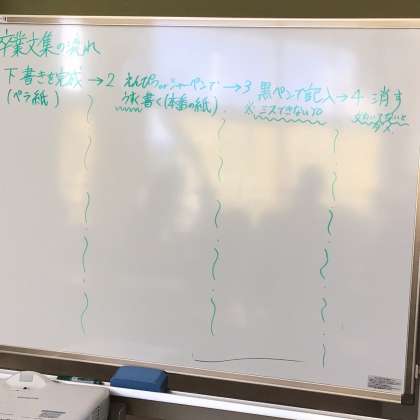 卒業文集の流れ
下書きを完成 → 2 えんぴつorシャーペンで → 3 黒ペンで記入 → 4 消す
(ペラ紙) うすく書く(本番の紙) ※ミスできない